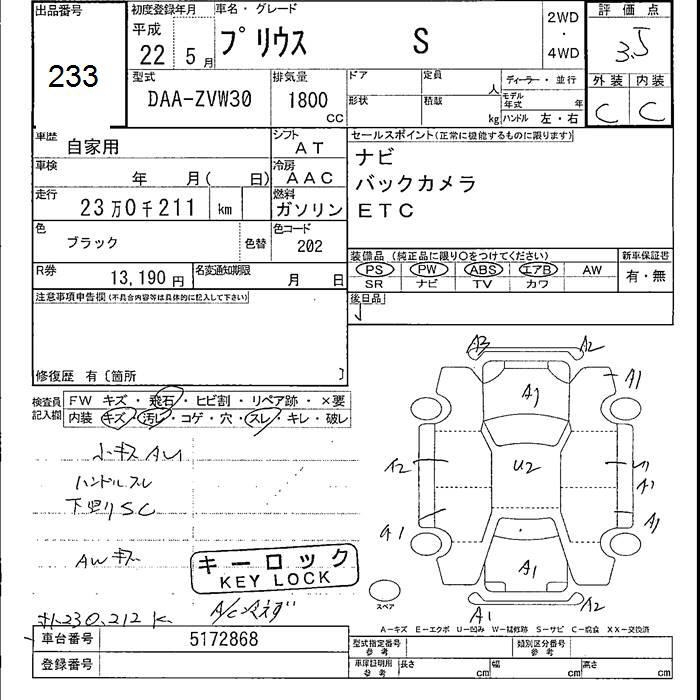 出品番号
233
初度登録年月
平成
22年 5月
車名・グレード
プリウス S
2WD
・
4WD
評価点
3.5
外装 内装
C C
型式
DAA-ZVW30
排気量
1800
CC
ドア
形状
定員
人
積載
kg
ディーラー・並行
モデル年式 年
ハンドル 左・右
車歴
自家用
シフト
AT
車検
年 月( 日)
冷房
AAC
走行
23万0千211 km
燃料
ガソリン
色
ブラック
色替
色コード
202
R券
13,190円
名変通知期限
月 日
セールスポイント(正常に機能するものに限ります)
ナビ
バックカメラ
ETC
装備品 (純正品に限り○をつけてください)
PS PW ABS エアB AW
SR ナビ TV カワ
新車保証書
有・無
後日品
注意事項申告欄(不具合内容等は具体的に記入して下さい)
修復歴 有〔箇所 〕
検査員記入欄
FW キズ・飛石・ヒビ割・リペア跡・×要
内装 キズ・汚レ・コゲ・穴・スレ・キレ・破レ
小キズAU
ハンドルスレ
下回りSC
AWキズ
キーロック
KEY LOCK
230,212K
A3 A2
A1
A1
A2
U2
A1
A1
A1
A1
A1 A2
スペア
A-キズ E-エクボ U-凹み W-補修跡 S-サビ C-腐食 XX-交換済
車台番号
5172868
登録番号
型式指定番号
参考
類別区分番号
参考
車庫証明用
参考
長さ cm
幅 cm
高さ cm